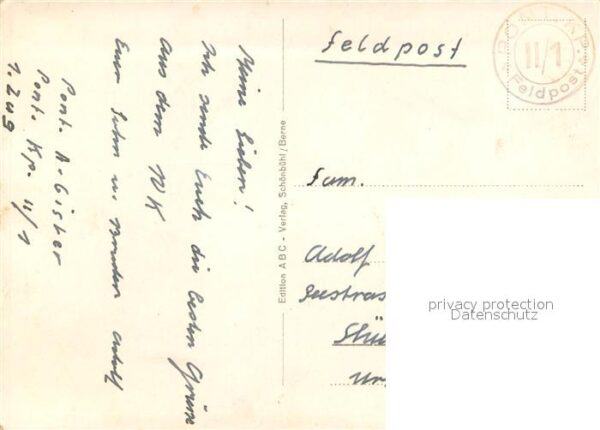 Meine Lieben!
Ich sende Euch die besten Grüsse
aus dem WK
Euer Sohn u. Bruder Adolf
Pont. A. Gisler
Pont. Kp. II/1
1. Zug
Edition ABC - Verlag, Schönbühl/Berne
Feldpost
PONT. KP.
II/1
Feldpost
Fam.
Adolf
Seestras
privacy protection
Datenschutz